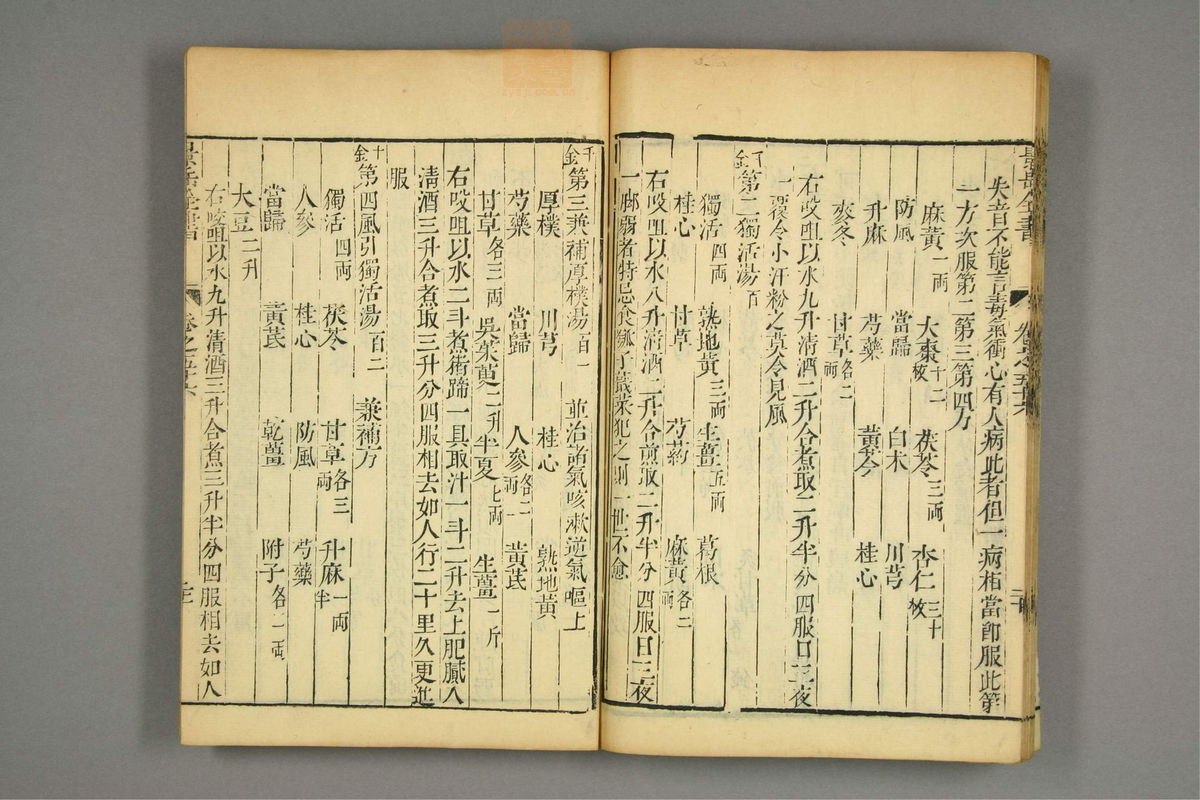 景岳全書 卷之五十六
失音不能言毒氣衝心有人病此者但一病相當卽服此第
一方次服第二第三第四方
麻黃一兩 大棗十二枚 茯苓三兩 杏仁三十枚
防風 當歸 白朮 川芎
升麻 芍藥 黃芩 桂心
麥冬 甘草各二兩
右㕮咀以水九升清酒二升合煮取二升半分四服日三夜
一覆令小汗粉之莫令見風
千金第二獨活湯百
獨活四兩 熟地黃三兩 生薑五兩 葛根
桂心 甘草 芍葯 麻黃各二兩
右㕮咀以水八升清酒二升合煎取二升半分四服日三夜
一腳弱者特忌食瓠子蕺菜犯之則一世不愈
千金第三兼補厚樸湯百一 並治諸氣咳嗽逆氣嘔上
厚樸 川芎 桂心 熟地黃
芍藥 當歸 人參各二兩 黃芪
甘草各三兩 吳茱萸二升 半夏七兩 生薑一斤
右㕮咀以水二斗煮猪蹄一具取汁一斗二升去上肥膩入
清酒三升合煮取三升分四服相去如人行二十里久更進
服
千金第四風引獨活湯百二 兼補方
獨活四兩 茯苓 甘草各三兩 升麻一兩半
人參 桂心 防風 芍藥
當歸 黃芪 乾薑 附子各二兩
大豆二升
右㕮咀以水九升清酒三升合煮三升半分四服相去如人
景岳全書 卷之五十六
zysj.com.cn